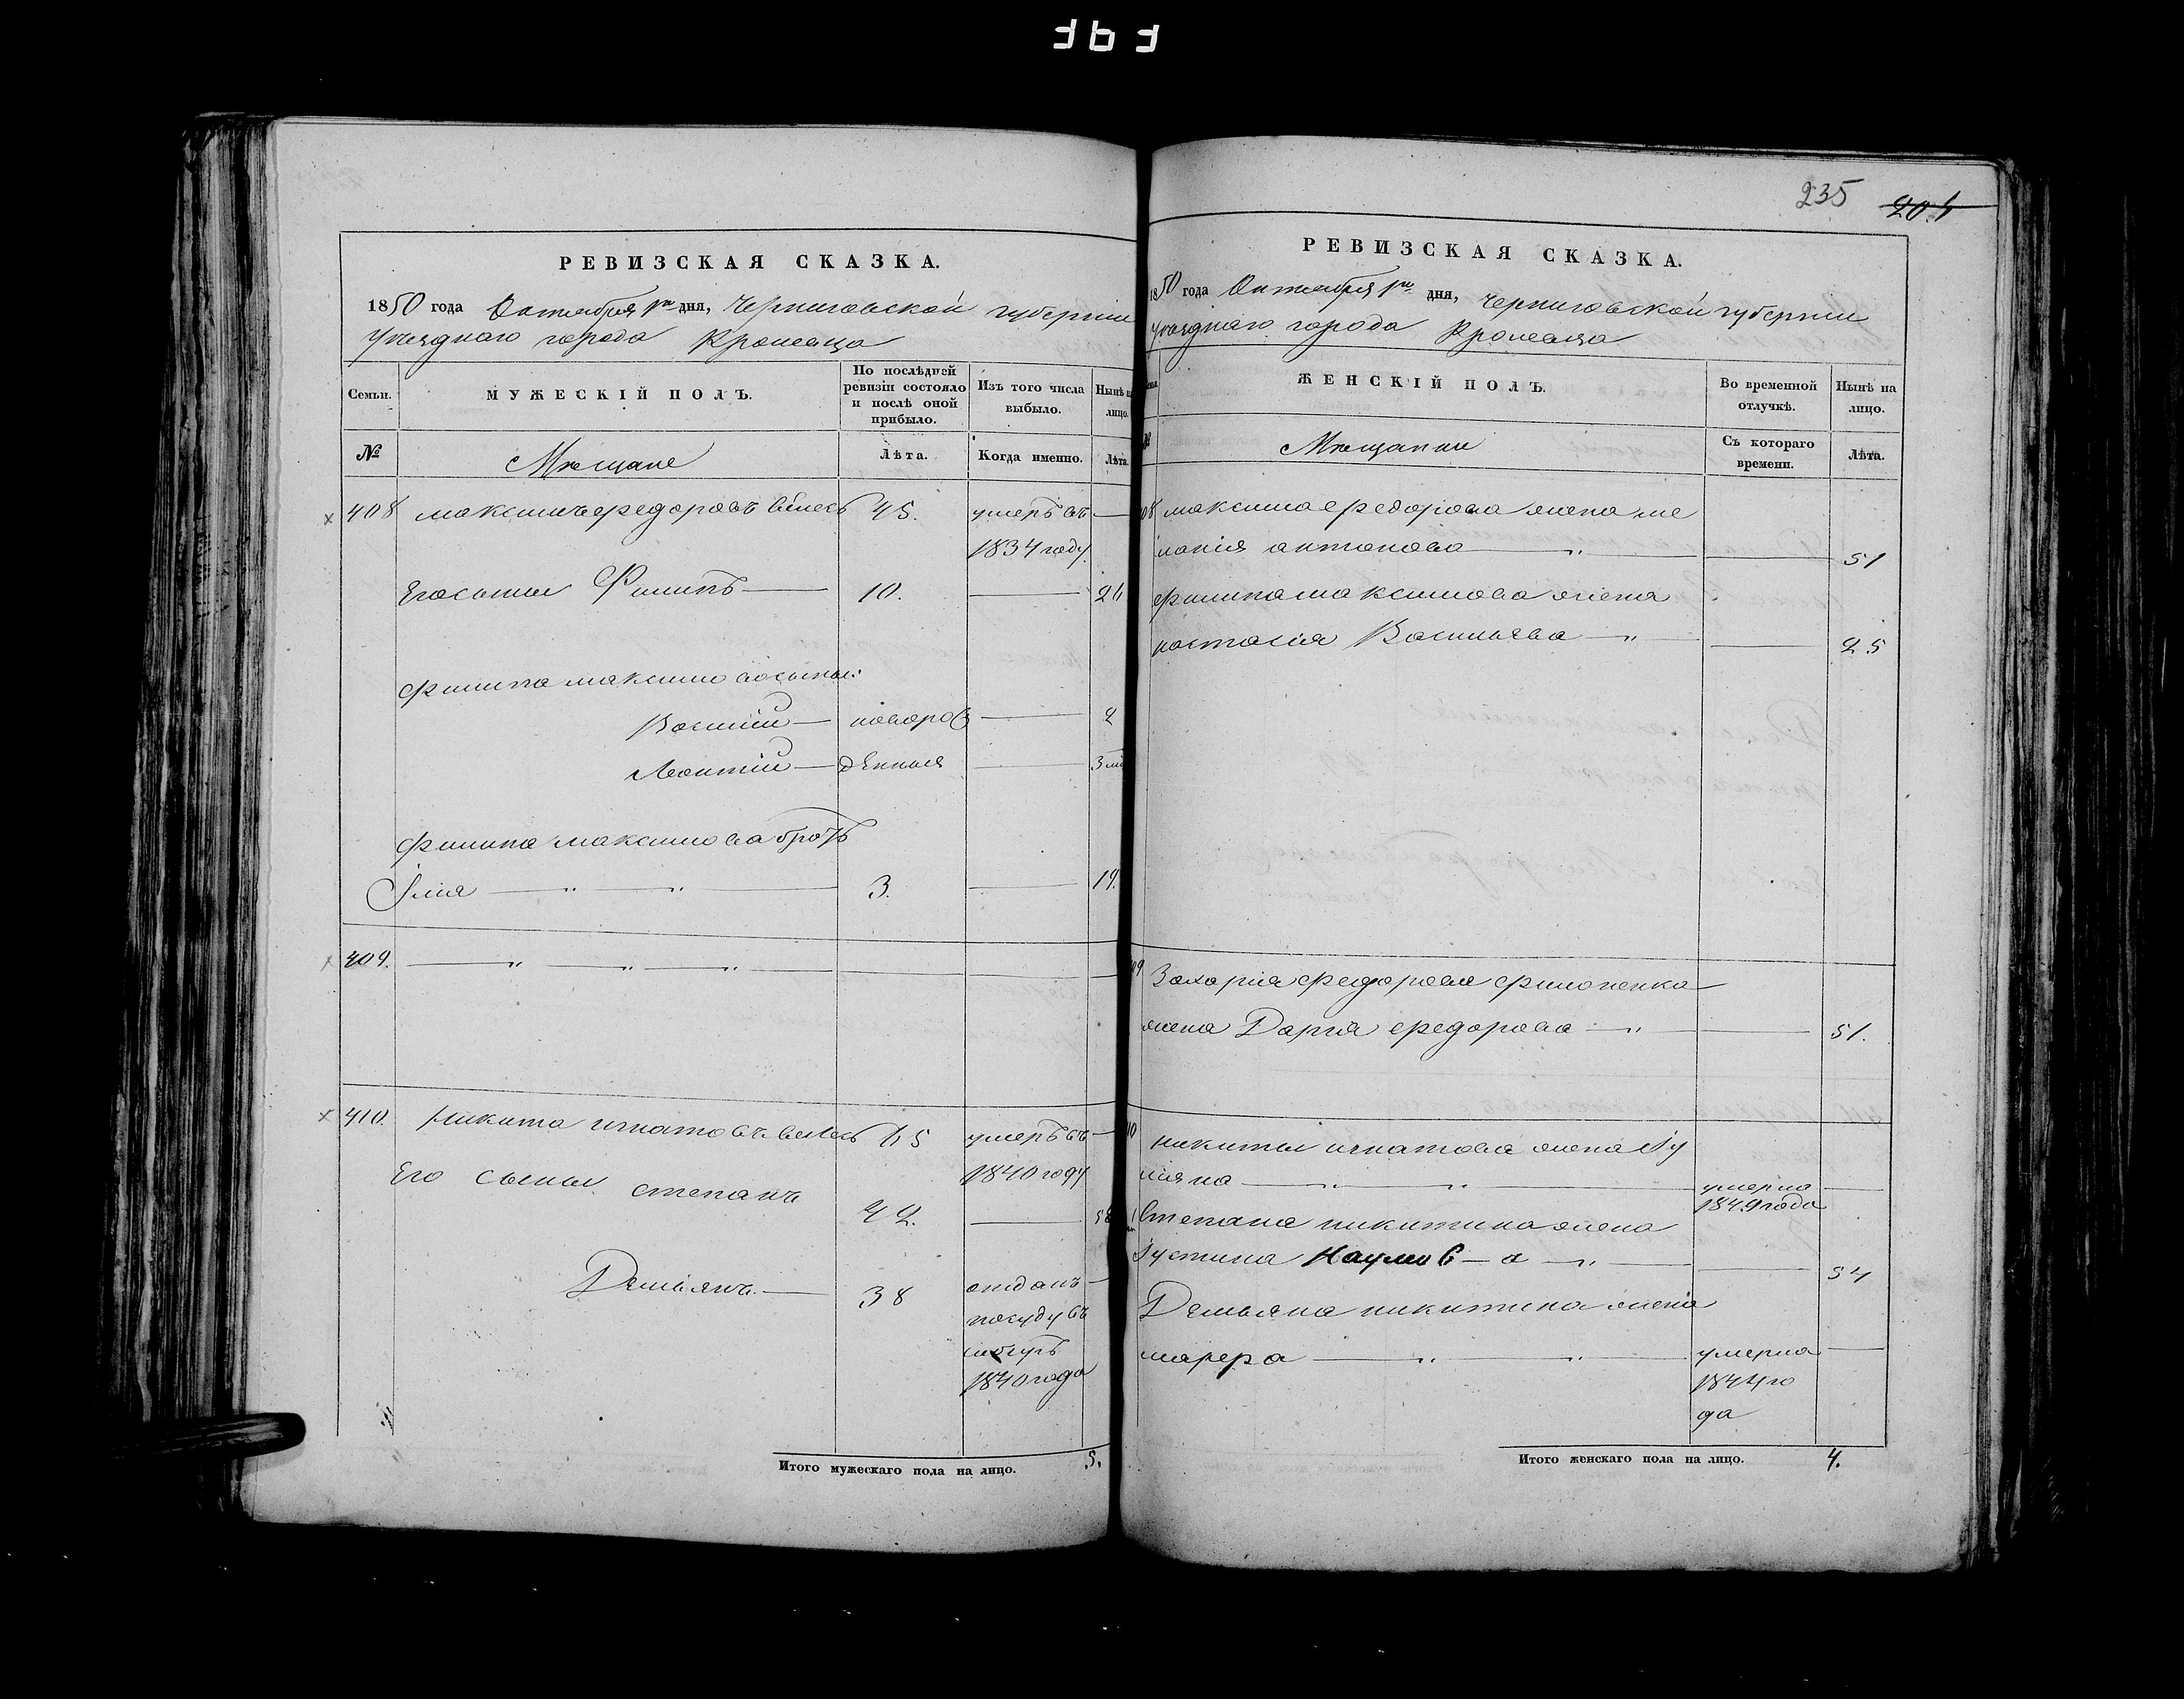 363
РЕВИЗСКАЯ СКАЗКА.
1850 года Октября 1го дня, Черниговской губернии
уѣзднаго города Кролевца
Семьи.
МУЖЕСКІЙ ПОЛЪ.
По послѣдней ревизіи состояло и послѣ оной прибыло.
Изъ того числа выбыло.
Нынѣ на лицо.
№
Мѣщане
Лѣта.
Когда именно.
Лѣта.
408 максимъ федоровъ 45. умеръ въ
1834 году
Егосыны Филипъ 10. 26
филипа максимова сыны:
Василий новорож 2
Леонтий денныя 3
филипа максимова братъ
Илия 3. 19.
409.
410. Никита игнатовъ 65 умеръ въ
1840 году
Его сыны степанъ 42. 58
Демьянъ 38 отданъ
посуду въ
1840 года
Итого мужескаго пола на лицо. 5.
235 204
РЕВИЗСКАЯ СКАЗКА.
1850 года Октября 1го дня, Черниговской губернии
уѣзднаго города Кролевца
ЖЕНСКІЙ ПОЛЪ.
Во временной отлучкѣ.
Нынѣ на лицо.
Мѣщанки
Съ котораго времени.
Лѣта.
08 максима федорова жена ме
ланія антонова 51
филипа максимова жена
настасия Васильева 25
09 Захария федорова филоненка
жена Дария федорова 51.
10 никиты игнатова жена Лу
ліяна умерла
1849 года
Степана никитина жена
Густина Наумов-а 54
Демьяна никитина жена
марфа умерла
1844 го
да
Итого женскаго пола на лицо. 4.